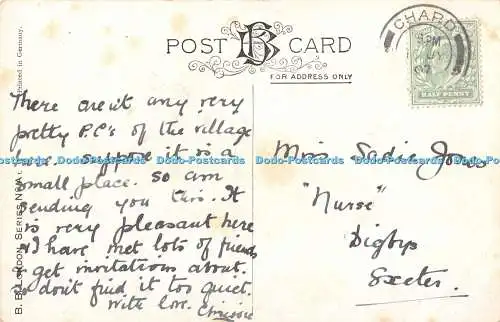 POST CARD
FOR ADDRESS ONLY
CHARD
HALF PENNY
Printed in Germany.
B. B. LONDON SERIES No
There aren't any very
pretty P.C's of the village
here. suppose it is a
small place. so am
sending you this. It
is very pleasant here
& I have met lots of friends
& get invitations about.
so don't find it too quiet.
With love. Chrissie
Miss Sadie Jones
"Nurse"
Digbys
Exeter.
Dodo-Postcards Dodo-Postcards Dodo-Postcards Dodo-Postcards Dodo-Postcards